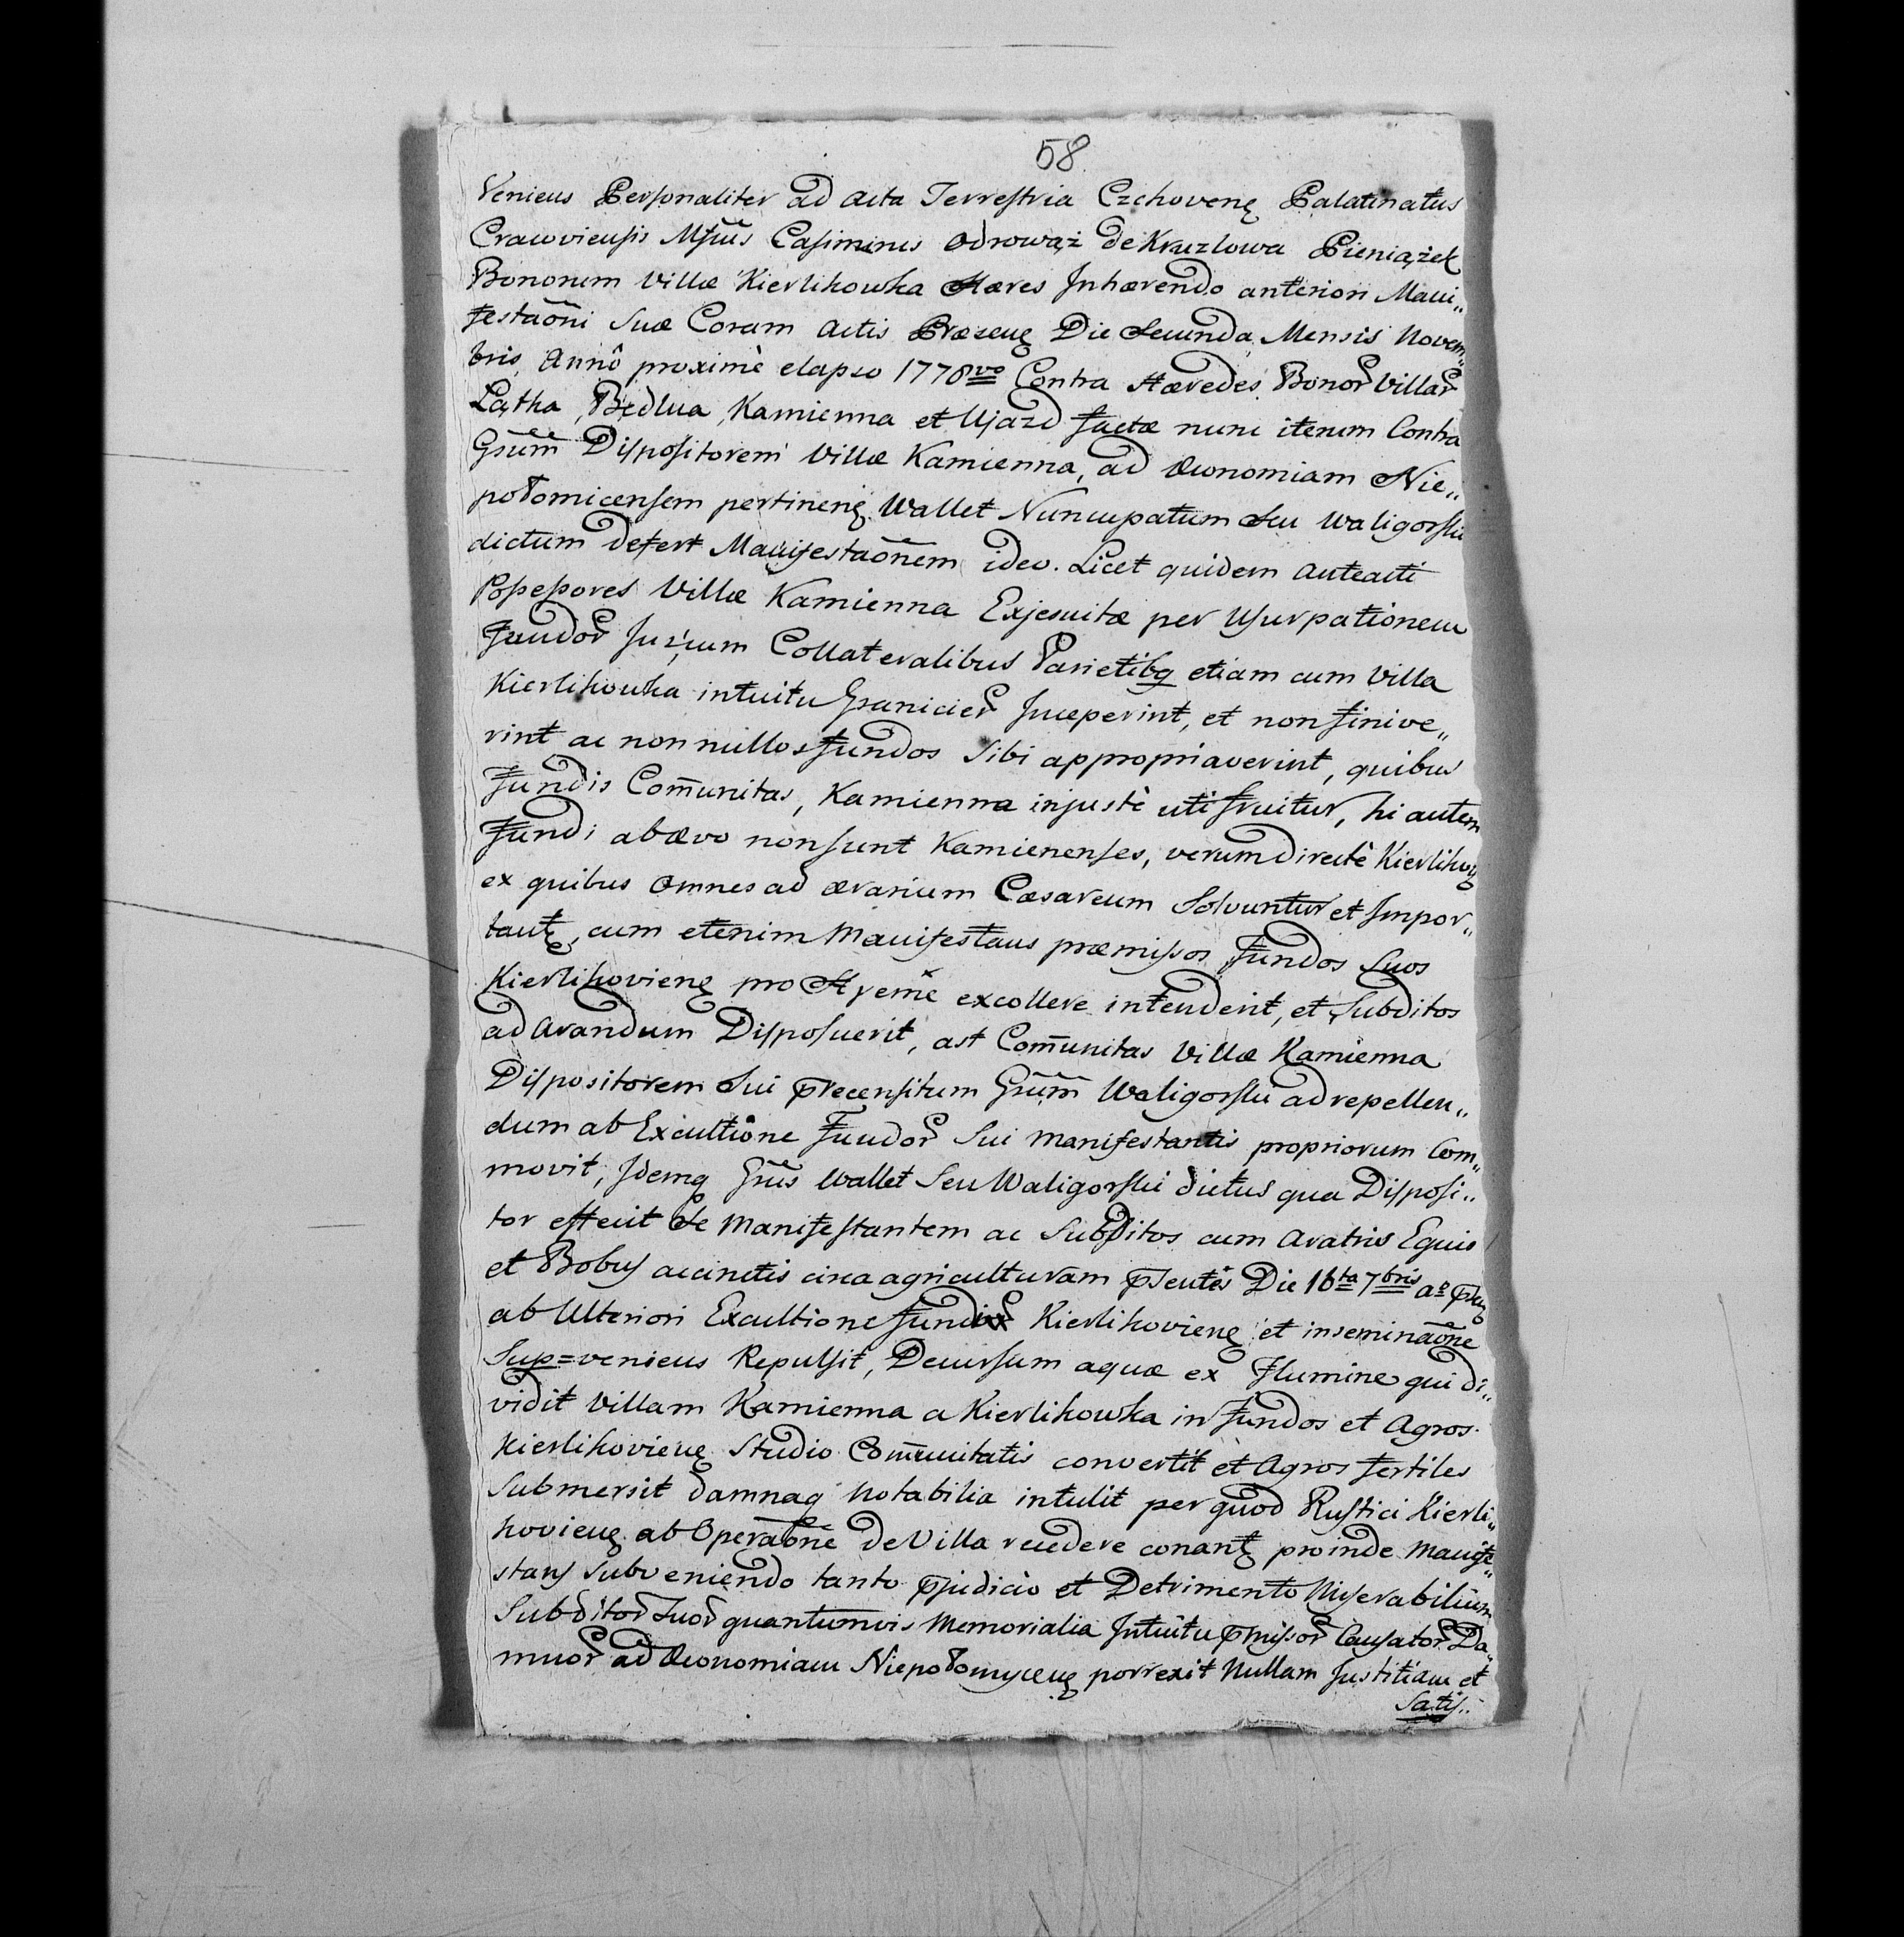 58.
Veniens Personaliter ad Acta Terrestria Czchoven. Palatinatus
Cracoviensis Mfius Casimirus Odrowąż de Kruzlowa Pieniążek
Bonorum Villæ Kierlikowka Hæres Inhærendo anteriori Mani„
festaõni Suæ Coram Actis Præsen. Die Secunda Mensis Novem„
bris Annô proximè elapso 1778vo Contra Hæredes Bonor. Villar.
Łątka, Bedlua, Kamienna et Ujazd factæ nunc iterum Contra
Gsum Dispositorem Villæ Kamienna, ad Œconomiam Nie„
potomicensem pertinen. Wallet Nuncupatum Seu Waligorski
dictum defert Manifestaõnem ideo. Licet quidem anteacti
Possessores Villæ Kamienna Exjesuitæ per Usurpationem
Fundor. Jurium Collateralibus Parietibq etiam cum Villa
Kierlikowka intuitu Granicier. Inceperint, et non finive„
rint ac non nullos fundos Sibi appropriaverint, quibus
Fundis Com̃unitas, Kamienna injustè uti fruitur, hi autem
Fundi ab ævo non sunt Kamienenses, verum directè Kierlikov.
ex quibus Omnes ad ærarium Cæsareum Solvuntur et Impor„
tant., cum etenim Manifestans præmissos Fundos Suos
Kierlikovien. pro Hyeme excollere intenderit, et Subditos
ad Arandum Disposuerit, ast Com̃unitas Villæ Kamienna
Dispositorem Sui precensitum Gsum Waligorski ad repellen„
dum ab Excultiône Fundor. Sui manifestantis propriorum Com„
movit, Idemq Gsus Wallet Seu Waligorski dictus qua Disposi„
tor effecit Se Manifestantem ac Subditos cum Aratris Equis
et Bobus accinctis circa agriculturam psentes Die 16ta 7bris ao psen.
ab Ulteriori Excultione fundor. Kierlikovien. et inseminaõne
Sup=veniens Repulsit, Decursum aquæ ex Flumine qui di„
vidit Villam Kamienna a Kierlikowka in Fundos et Agros
Kierlikovien. Studio Com̃unitatis convertit et Agros fertiles
Submersit damnaq notabilia intulit per quod Rustici Kierli„
kovien. ab Operaõne de Villa recedere conant. proinde Manife„
stans Subveniendo tanto pjudicio et Detrimento Miserabilium
Subditor. Suor. quantumvis Memorialia Intuitu pmissor. Causator. Da„
mnor. ad Œconomiam Niepotomycen. porrexit Nullam Justitiam et
Satis..